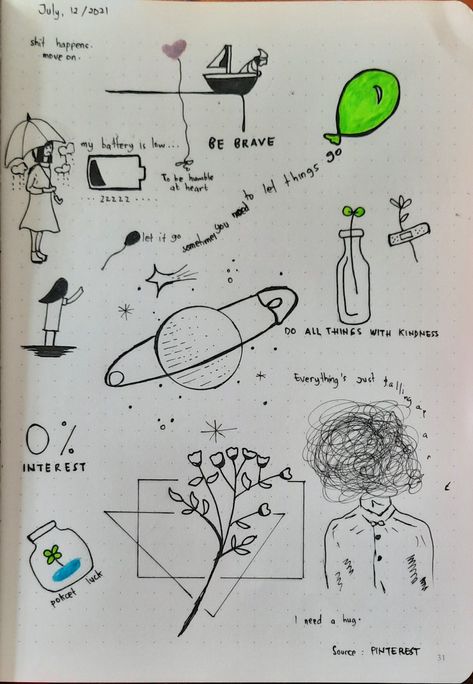 July, 12 / 2021
shit happens.
move on.
my battery is low...
..zzzzz....
To be humble
at heart
BE BRAVE
let it go
sometimes you need to let things go
DO ALL THINGS WITH KINDNESS
Everything's just falling apar
0%
INTEREST
pokcet luck
I need a hug.
Source : PINTEREST
31